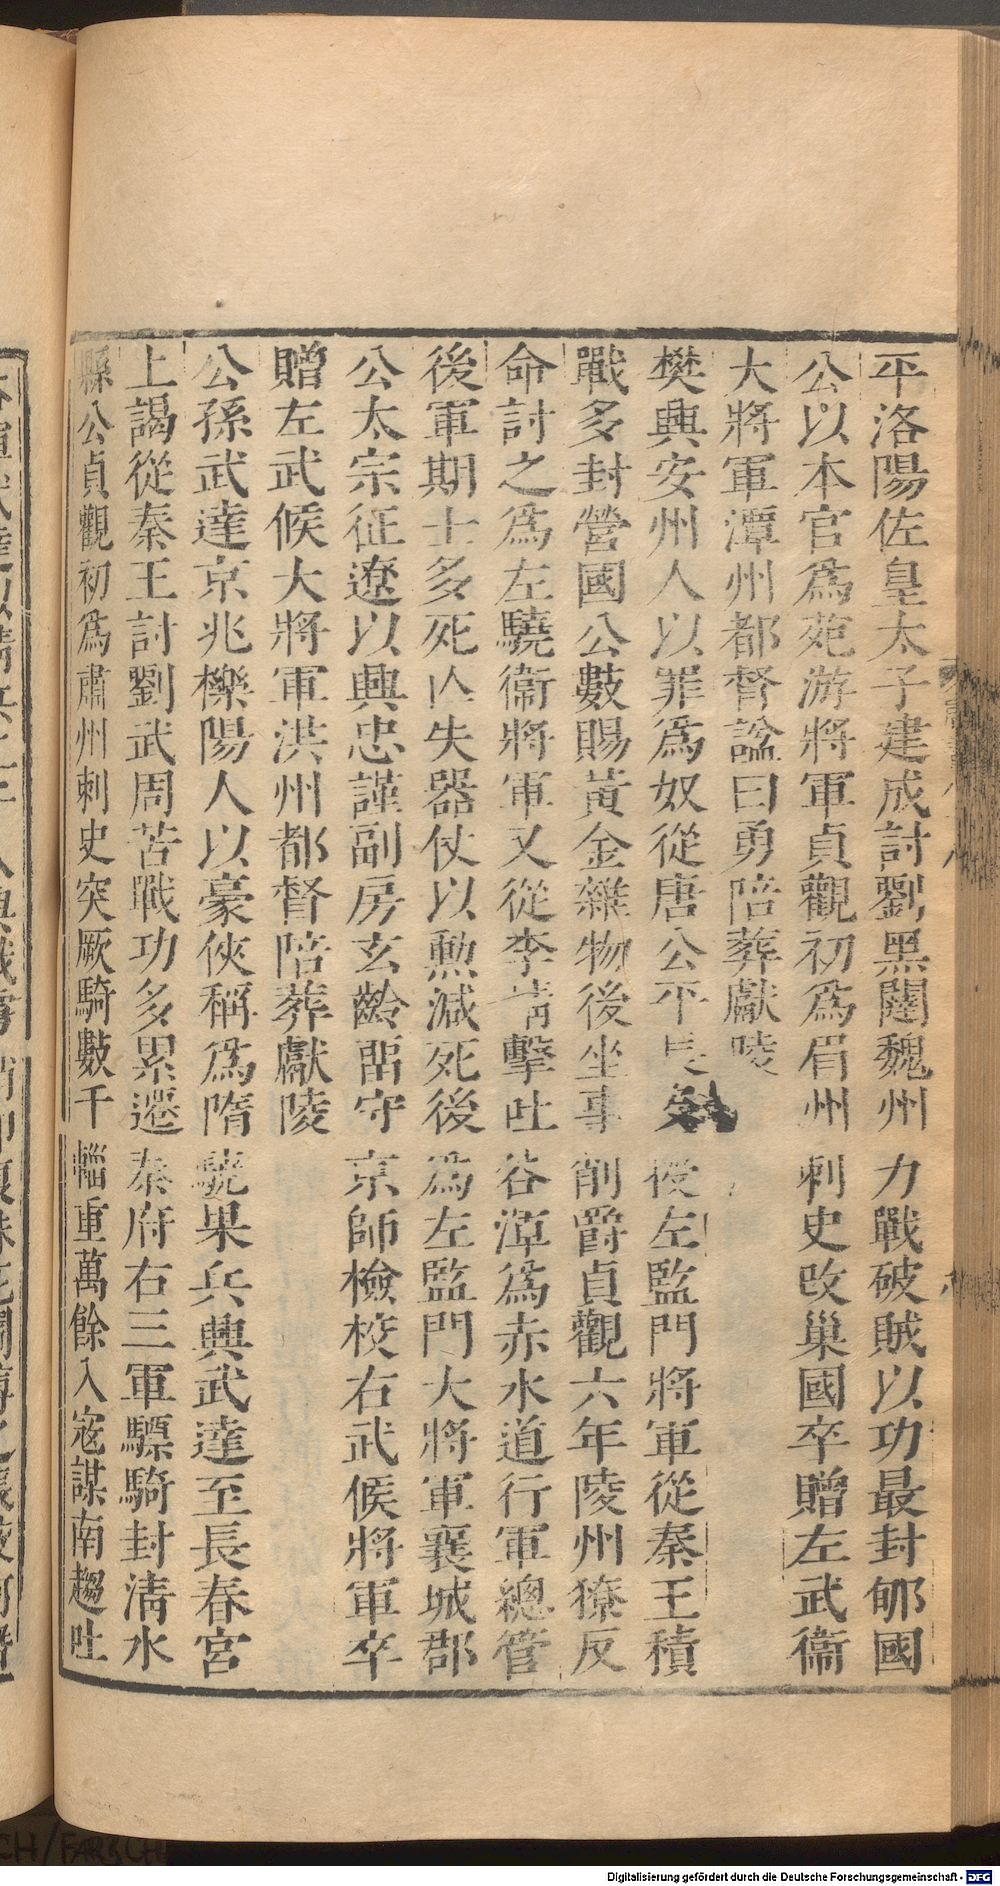 平洛陽佐皇太子建成討劉黑闥魏州力戰破賊以功最封郇國
公以本官爲苑游將軍貞觀初爲眉州刺史改巢國卒贈左武衞
大將軍潭州都督諡曰勇陪葬獻陵
樊興安州人以罪爲奴從唐公平長安授左監門將軍從秦王積
戰多封營國公數賜黃金雜物後坐事削爵貞觀六年陵州獠反
命討之爲左驍衞將軍又從李靖擊吐谷渾爲赤水道行軍總管
後軍期士多死亾失器仗以勲減死後爲左監門大將軍襄城郡
公太宗征遼以興忠謹副房玄齡畱守京師檢校右武候將軍卒
贈左武候大將軍洪州都督陪葬獻陵
公孫武達京兆櫟陽人以豪俠稱爲隋驍果兵興武達至長春宮
上謁從秦王討劉武周苦戰功多累遷秦府右三軍驃騎封淸水
縣公貞觀初爲肅州刺史突厥騎數千輜重萬餘入寇謀南趨吐
Digitalisierung gefördert durch die Deutsche Forschungsgemeinschaft - DFG